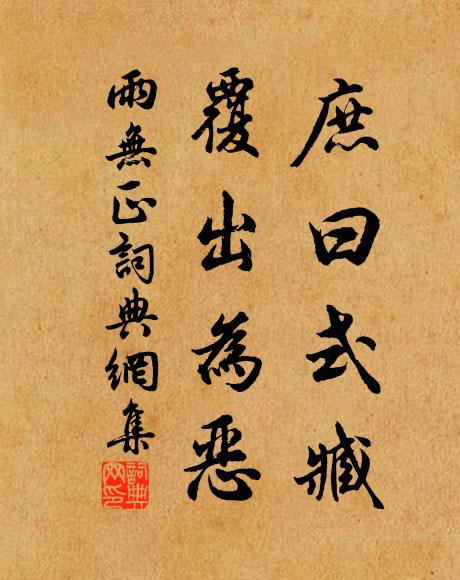 庶曰式臧
覆出為惡
雨無正詞典網集
詞典網印